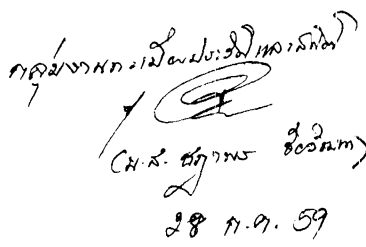 กลุ่มงานทะเบียนประวัติและสถิติ
(น.ส. ชฎาพร
28 ก.ค. 59